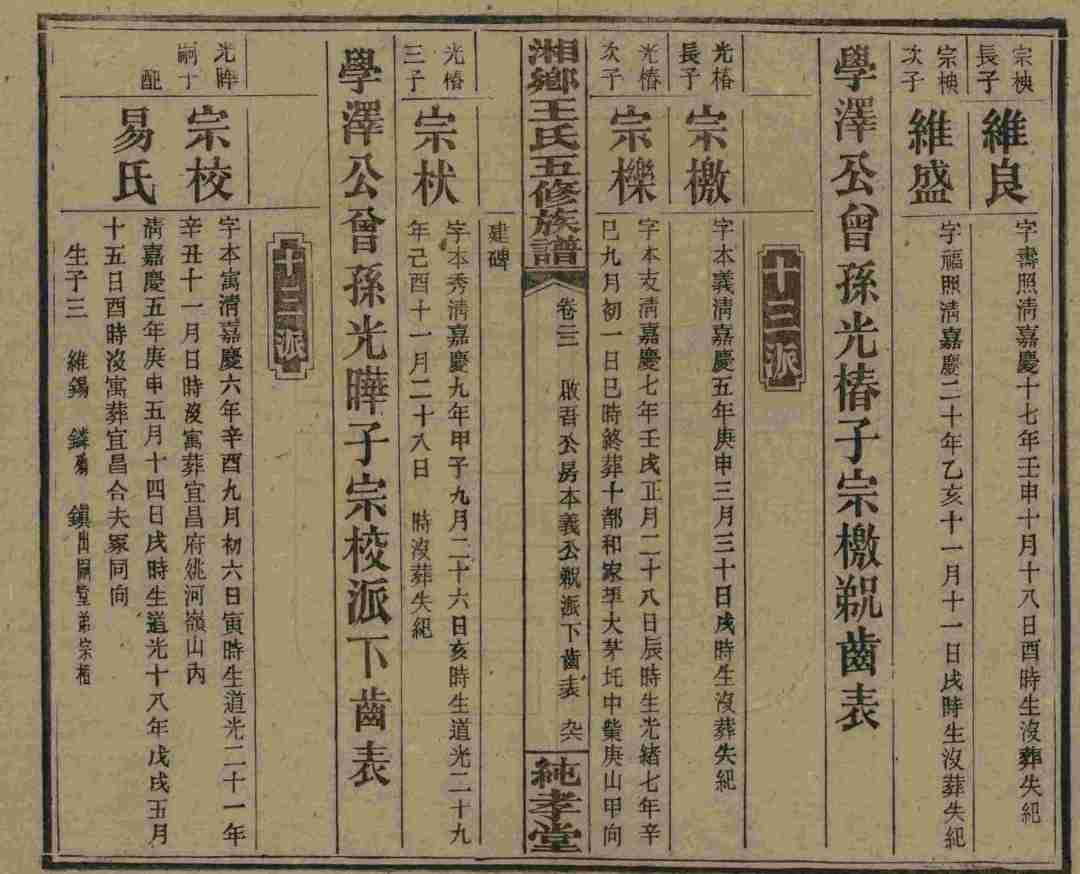 宗柍長子
維良
字壽照清嘉慶十七年壬申十月十八日酉時生沒葬失紀
宗柍次子
維盛
字福照清嘉慶二十年乙亥十一月十一日戌時生沒葬失紀
學澤公曾孫光椿子宗檄覜齒表
十三派
光椿長子
宗檄
字本義清嘉慶五年庚申三月三十日戌時生沒葬失紀
光椿次子
宗櫟
字本支清嘉慶七年壬戌正月二十八日辰時生光緒七年辛
巳九月初一日巳時終葬十都和家埡大芽圫中樂庚山甲向
湘鄉王氏五修族譜
卷三 啟吾公房本義公覜派下齒表
純孝堂
建碑
光椿三子
宗杕
字本秀清嘉慶九年甲子九月二十六日亥時生道光二十九
年己酉十一月二十八日 時沒葬失紀
學澤公曾孫光曄子宗校派下齒表
十三派
嗣子
宗校
字本寓清嘉慶六年辛酉九月初六日寅時生道光二十一年
辛丑十一月日時沒寓葬宜昌府姚河嶺山內
配
易氏
清嘉慶五年庚申五月十四日戌時生道光十八年戊戌五月
十五日酉時沒寓葬宜昌合夫冢同向
生子三 維錫 鏻 鎮出嗣堂弟宗